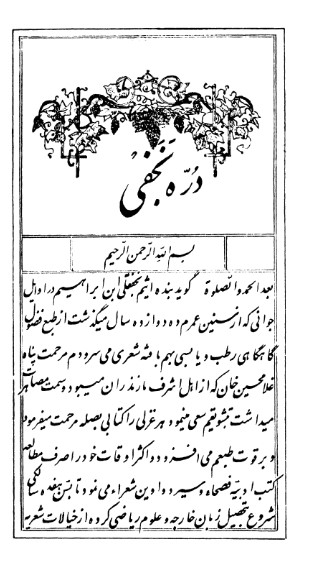 دُرّه نجفی
بسم الله الرّحمن الرّحیم
بعد الحمد والصّلوة گوید بنده اثیم نجفقلی ابن ابراهیم در اوایل
جوانی که از سنین عمرم ده دوازده سال میگذشت از طبع فضول
گاهگاهی رطب و یابسی بهم بافته شعری می سرودم مرحمت پناه
غلامحسین خان که از اهل اشرف مازندران میبود و سمت مصاهرت
میداشت بتشویقم سعی مینمود هر غزلی را کتابی بصله مرحمت میفرمود
و بر قوت طبعم می افزود و اکثر اوقات خود را صرف مطالعه
کتب ادبیّه فصحا و سیر دواوین شعراء می نمود تا بسن هفده سالگی
شروع بتحصیل زبان خارجه و علوم ریاضی کرده از خیالات شعریه